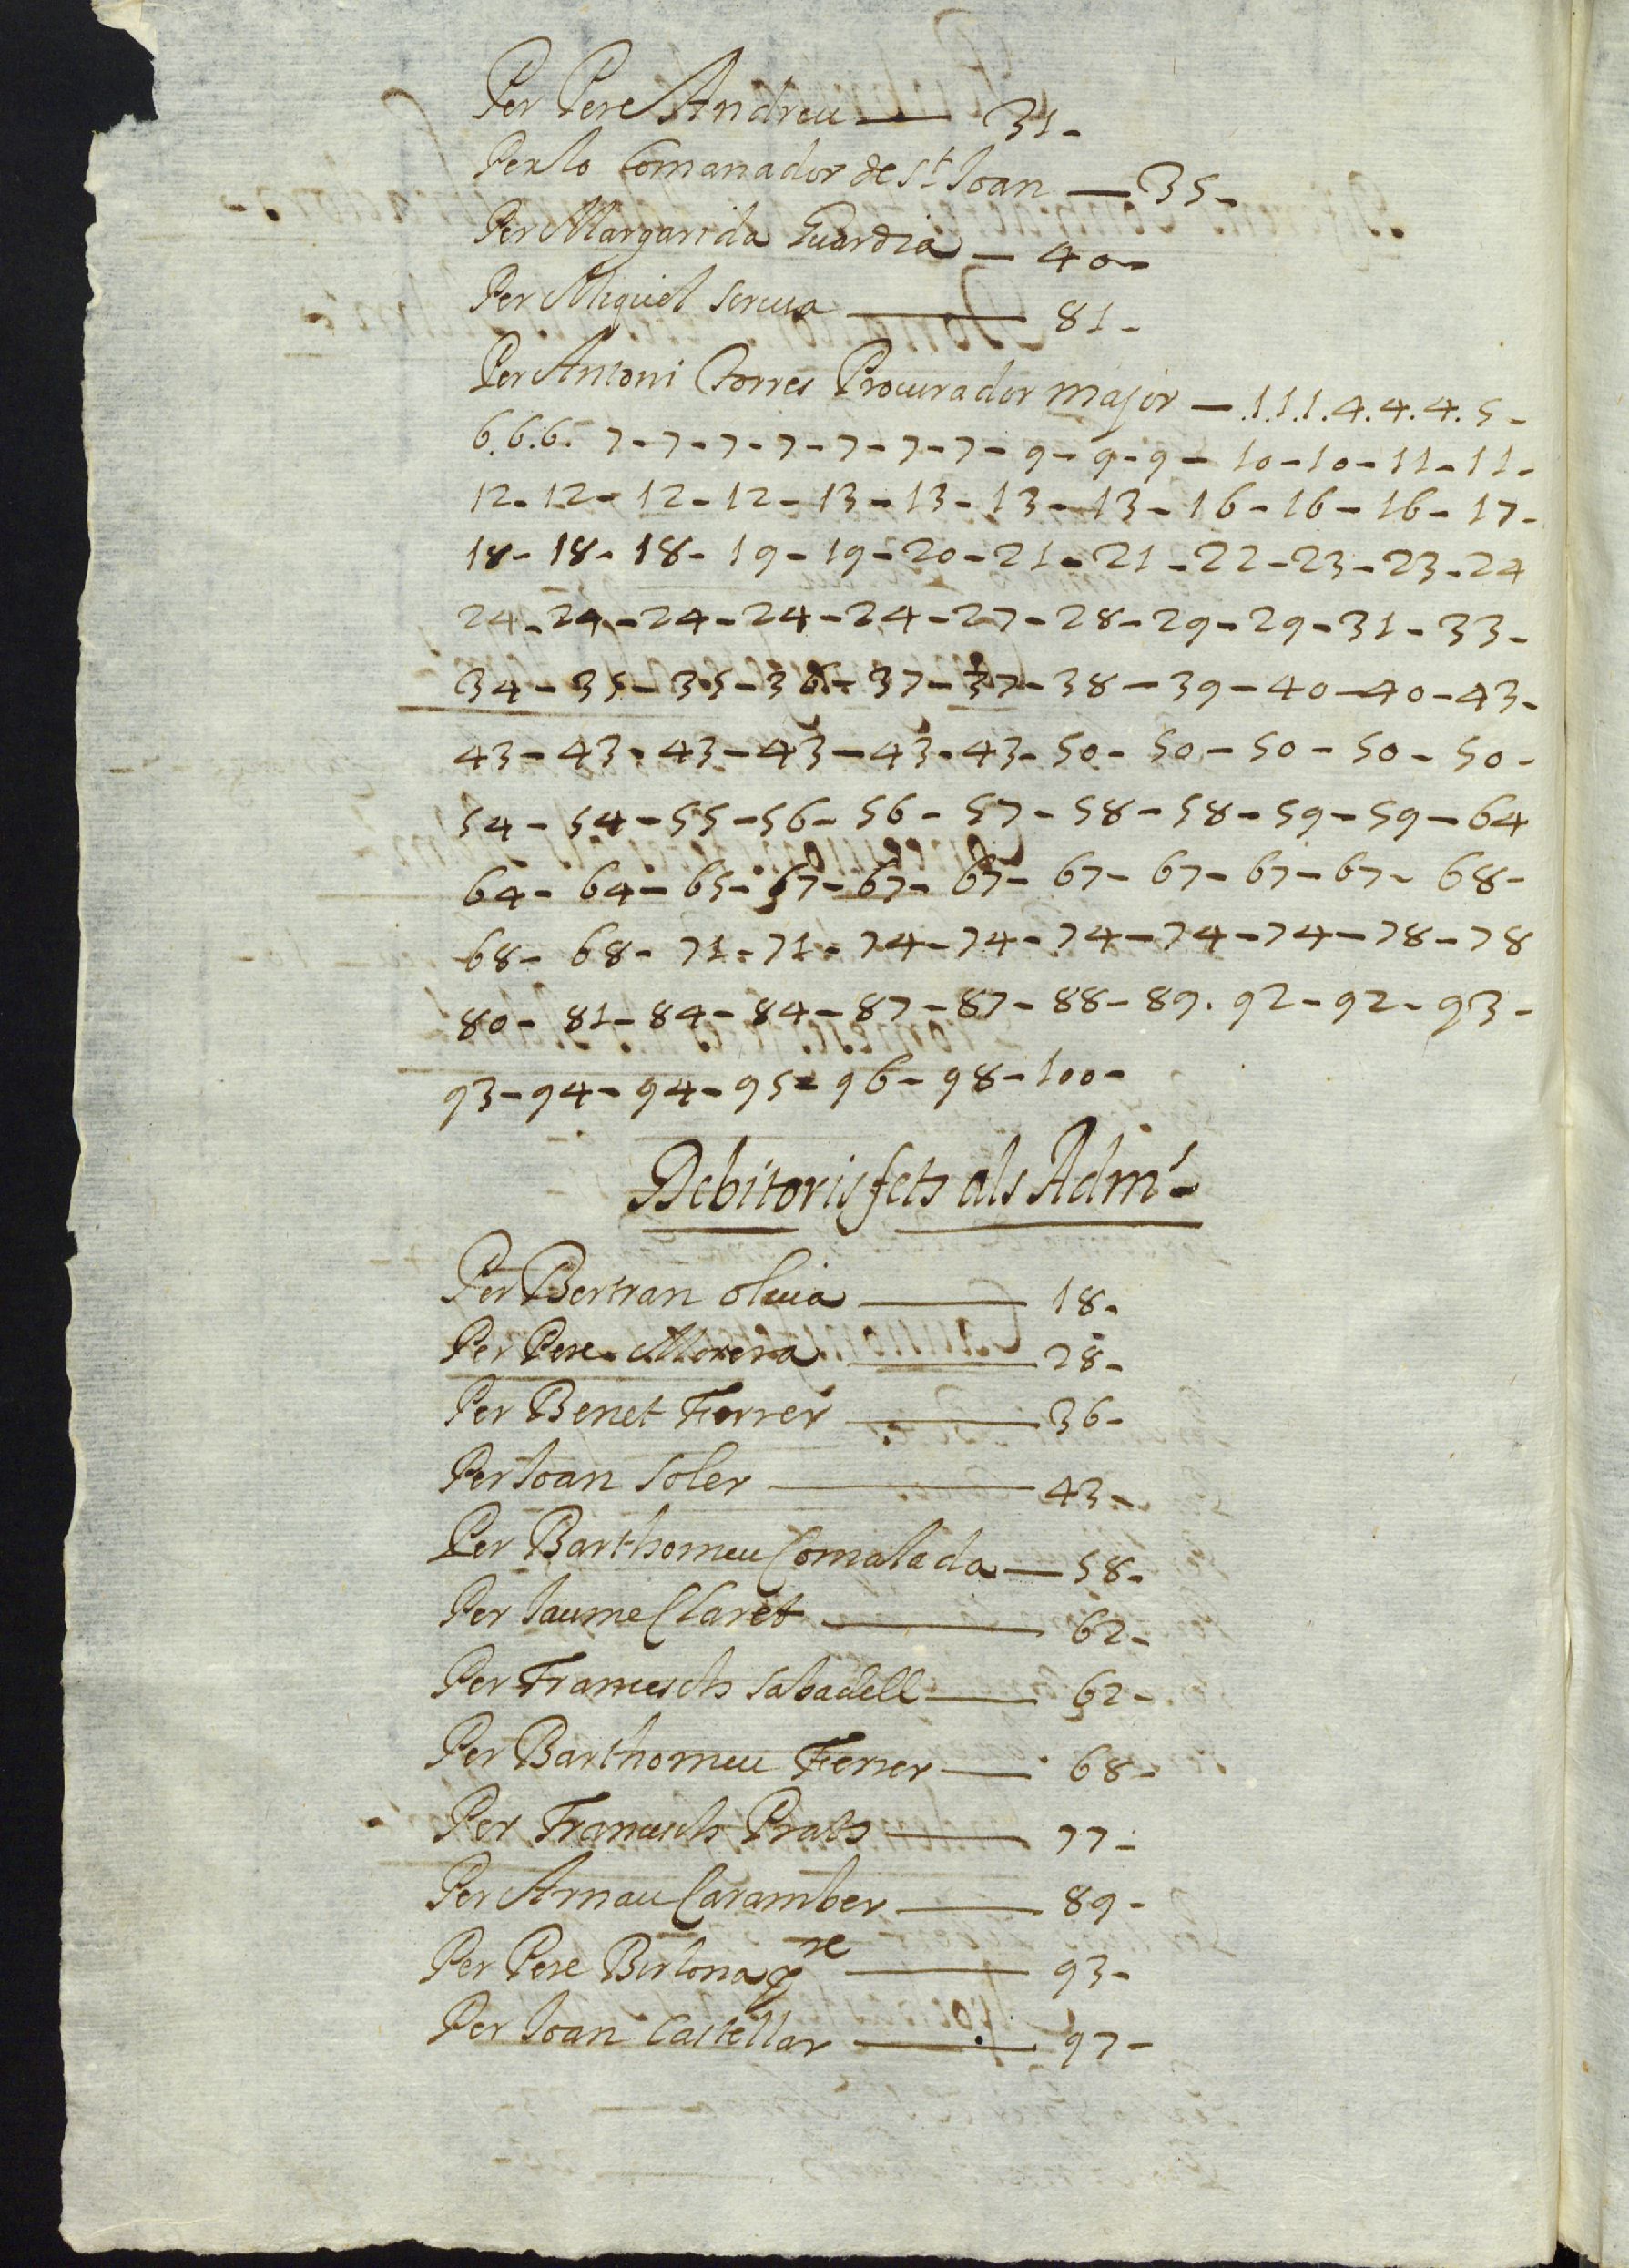 Per Pere Andreu — 31-
Per lo Comanador de st Joan — 35-
Per Margarida Guardia — 40-
Per Miquel serua — 81-
Per Antoni Torres Procurador major — 1.1.1.4.4.4.5-
6.6.6. 7-7-7-7-7-7-7-9-9-9-10-10-11-11-
12-12-12-12-13-13-13-13-16-16-16-17-
18-18-18-19-19-20-21-21-22-23-23-24
24-24-24-24-24-27-28-29-29-31-33-
34-35-35-36-37-37-38-39-40-40-43-
43-43-43-43-43-43-50-50-50-50-50-
54-54-55-56-56-57-58-58-59-59-64
64-64-65-67-67-67-67-67-67-67-68-
68-68-71-71-74-74-74-74-74-78-78
80-81-84-84-87-87-88-89.92-92-93-
93-94-94-95-96-98-100-
Debitoris fets als Adḿ-
Per Bertran oliuia — 18-
Per Pere Morera — 28-
Per Benet Ferrer — 36-
Per Joan Soler — 43-
Per Barthomeu Comalada — 58-
Per Jaume Claret — 62-
Per Francesch Sabadell — 62-
Per Barthomeu Ferrer — 68-
Per Francesch Prats — 77-
Per Arnau Caramber — 89-
Per Pere — 93-
Per Joan Castellar — 97-